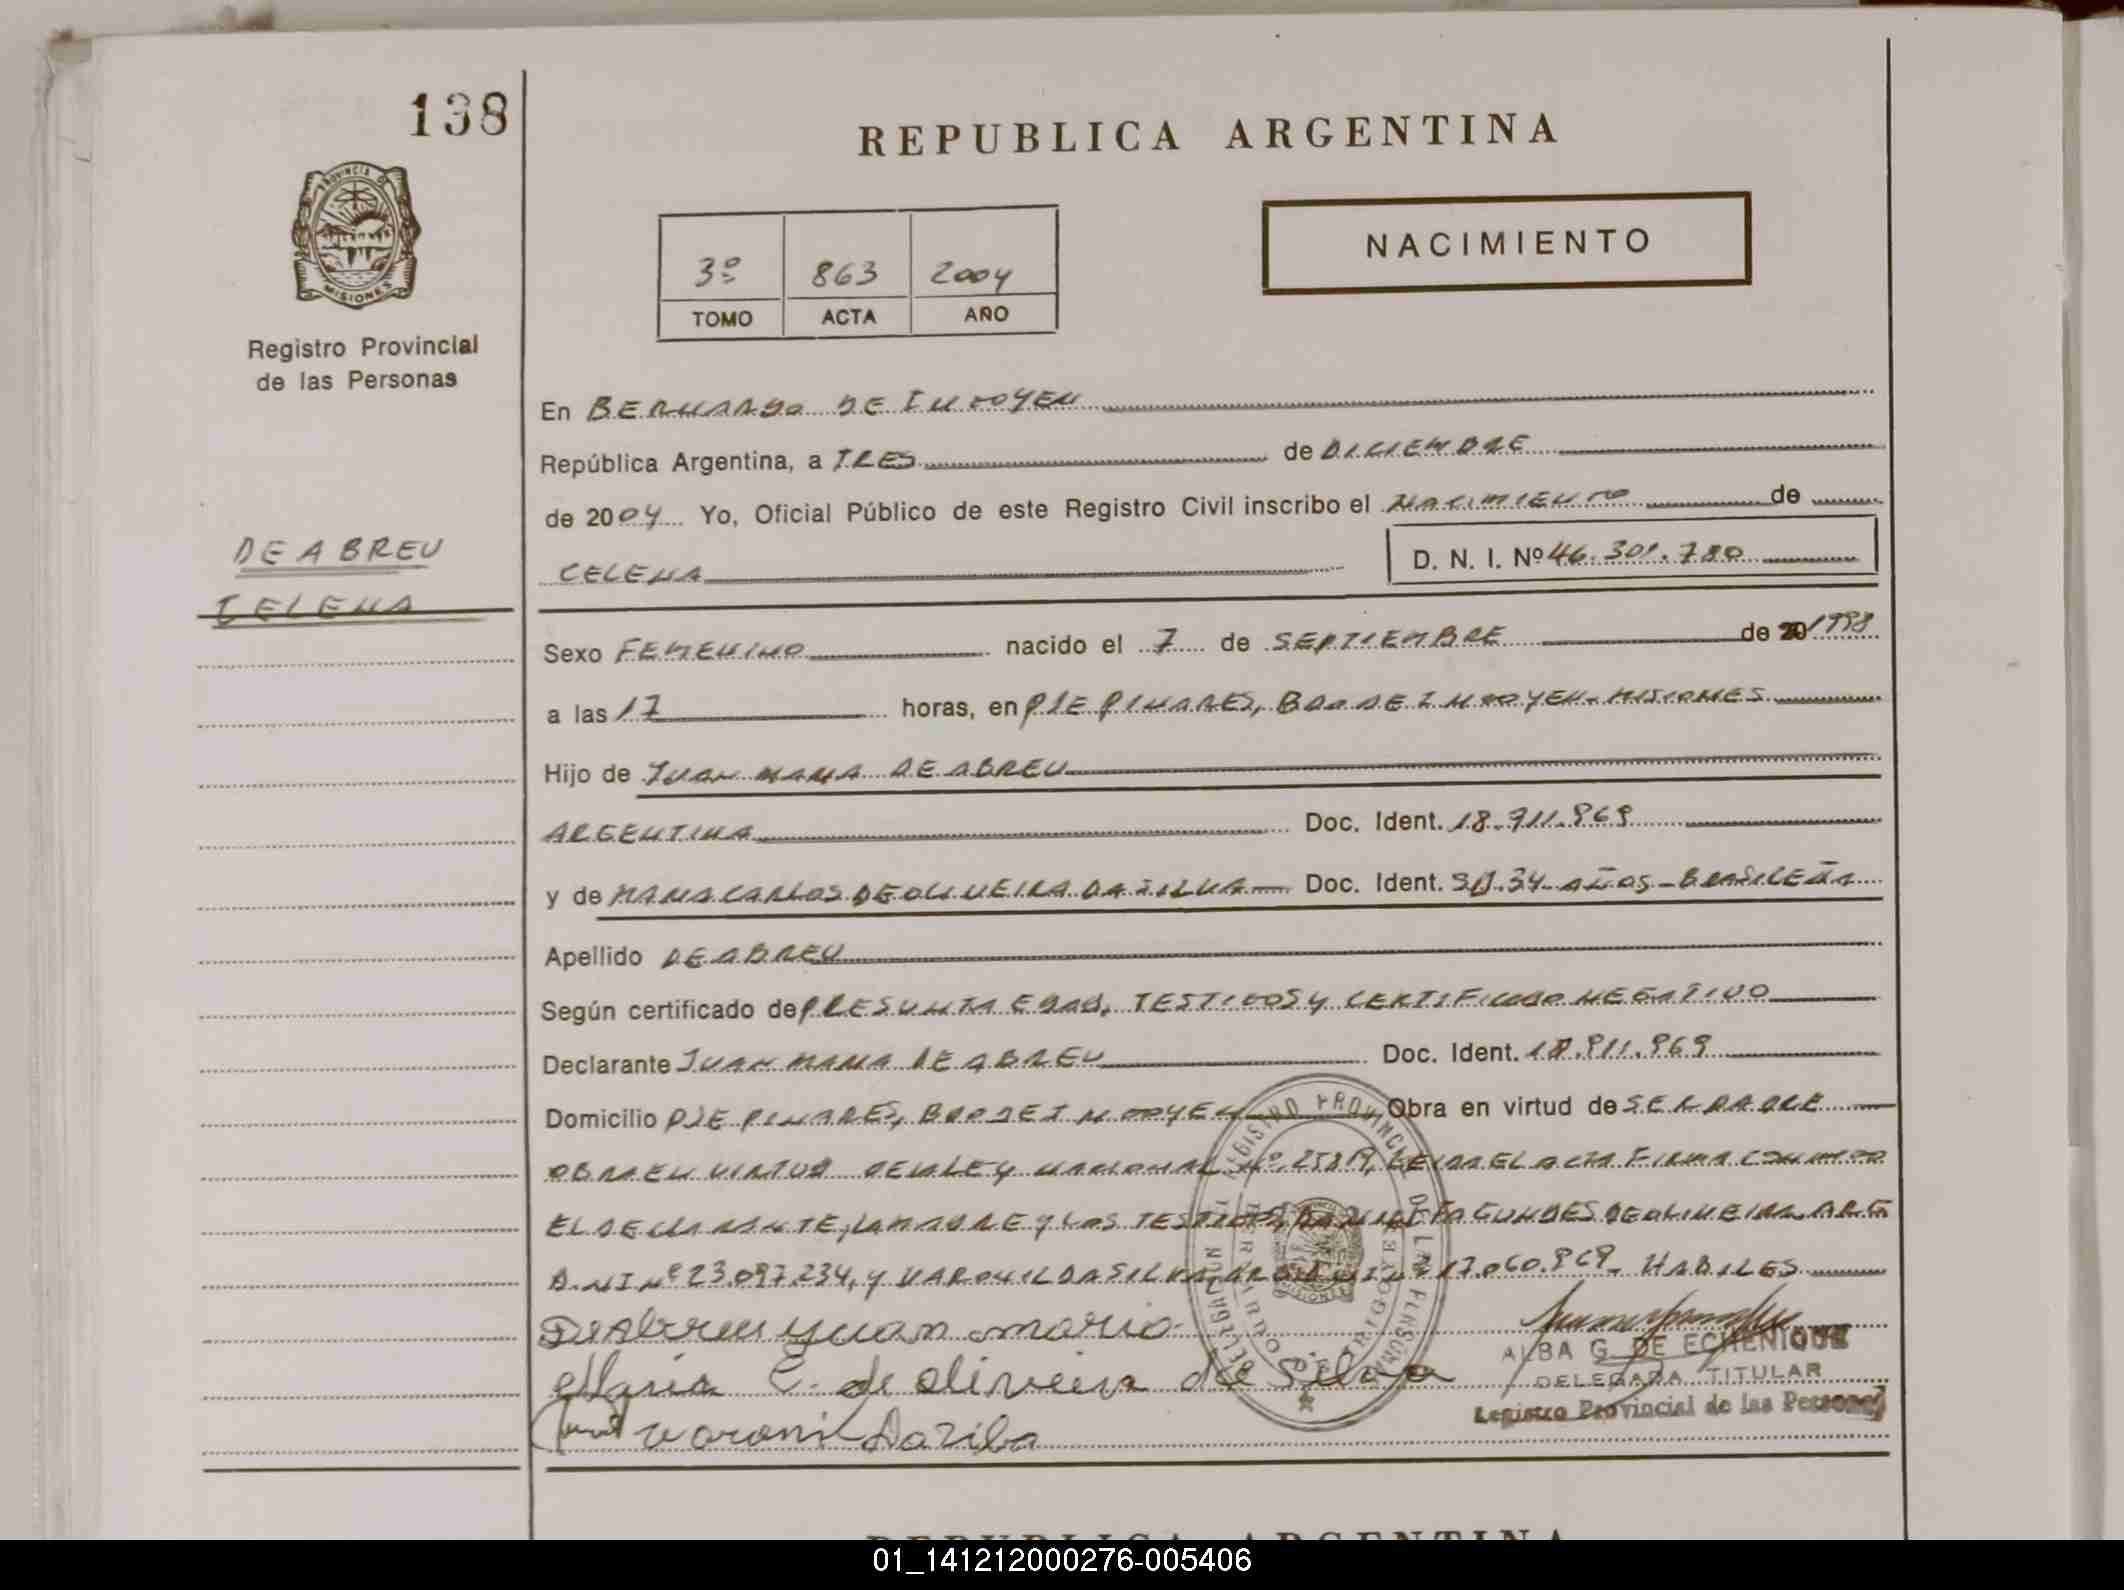 138
REPUBLICA ARGENTINA
NACIMIENTO
PROVINCIA DE
MISIONES
3º 863 2004
TOMO ACTA AÑO
Registro Provincial
de las Personas
En BERNARDO DE IRIGOYEN
República Argentina, a TRES de DICIEMBRE
de 2004 Yo, Oficial Público de este Registro Civil inscribo el NACIMIENTO de
DE ABREU
CELENA
CELENA D. N. I. Nº 46.301.780
Sexo FEMENINO nacido el 7 de SEPTIEMBRE de 1998
a las 17 horas, en PJE PINARES, BDO DE IRIGOYEN-MISIONES
Hijo de JUAN MARIA DE ABREU
ARGENTINA Doc. Ident. 18.911.969
y de MARIA CARLOS DE OLIVEIRA DA SILVA Doc. Ident. 34 AÑOS-BRASILEÑA
Apellido DE ABREU
Según certificado de PRESUNTA EDAD, TESTIGOS Y CERTIFICADO NEGATIVO
Declarante JUAN MARIA DE ABREU Doc. Ident. 18.911.969
Domicilio PJE PINARES, BDO DE IRIGOYEN Obra en virtud de SER PADRE
OBRA EN VIRTUD DE LA LEY NACIONAL Nº 25819, LEIDA EL ACTA FIRMA CONMIGO
EL DECLARANTE, LA MADRE Y LOS TESTIGOS, FAGUNDES DE OLIVEIRA, ARG
D.N.I Nº 23.097.234, Y DA SILVA, ARG D.N.I Nº 17.060.969- HABILES
DeAbreu yuan mario
Maria C. de Oliveira da Silva
ALBA G. DE ECHENIQUE
DELEGADA TITULAR
Registro Provincial de las Personas
REGISTRO PROVINCIAL DE LAS PERSONAS
REPUBLICA ARGENTINA
01_141212000276-005406